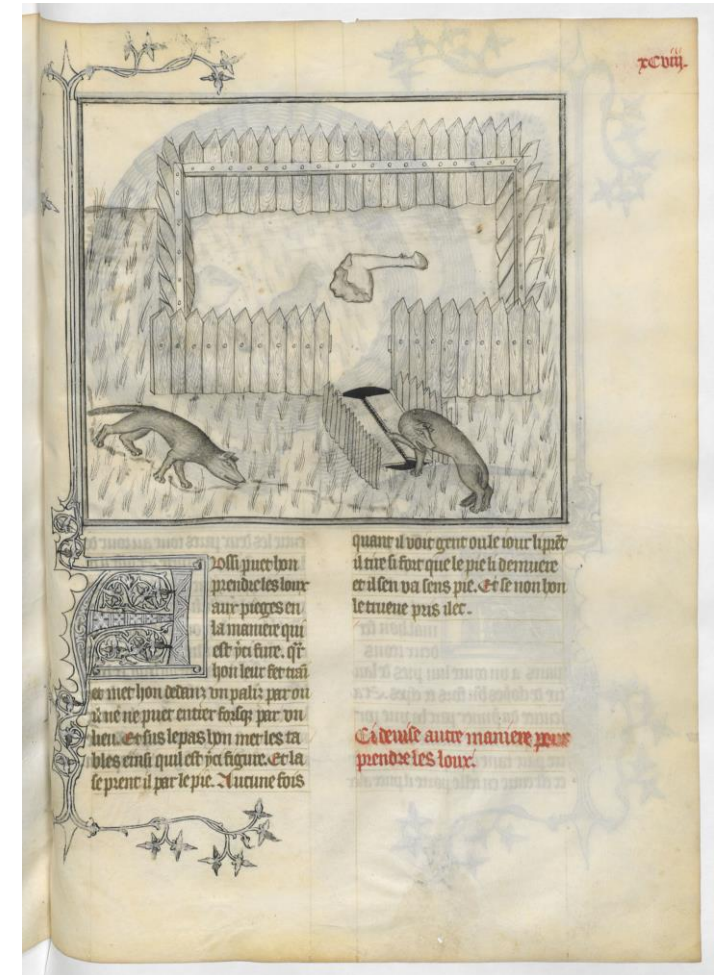 xcviij.
Aossi puet hon
prendre les loux
aux pieges en
la maniere qui
est yci figure. qr
hon leur fet trai
et met hon dedanz vn paliz par ou
il ne puet entrer forsqz par vn
lieu. Et sus le pas hon met les ta
bles einsi quil est yci figure. Et la
se prent il par le pie. Aucune fois
quant il voit gent ou le iour li prent
il tire si fort que le pie li demuere
et il sen va sens pie. Et se non hon
le trueue pris ilec.
Ci deuise autre maniere pour
prendre les loux.